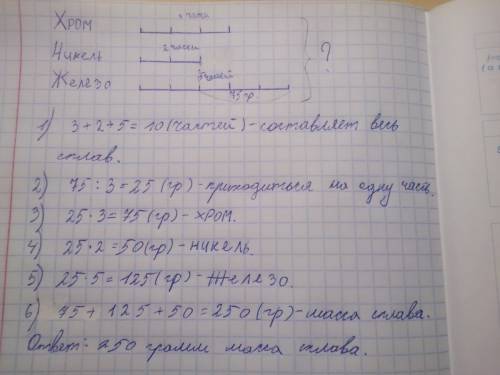 Хром 3 части
Никель 2 части
Железо 5 частей
75 гр
?
1) 3+2+5=10 (частей) - составляет весь
сплав.
2) 75:3=25 (гр) - приходиться на одну часть.
3) 25·3=75 (гр) - хром.
4) 25·2=50 (гр) - никель.
5) 25·5=125 (гр) - Железо.
6) 75+125+50=250 (гр) - масса сплава.
Ответ: 250 грамм масса сплава.